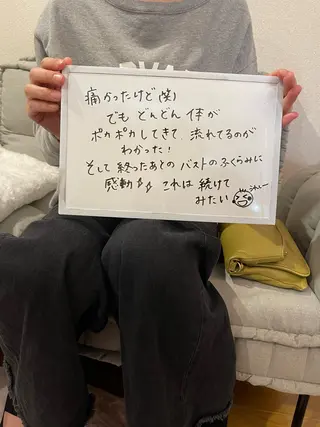 痛かったけど(笑)
でも どんどん 体が
ポカポカしてきて 流れてるのが
わかった!
そして 終ったあとの バストのふくらみに
感動 これは 続けて
みたい